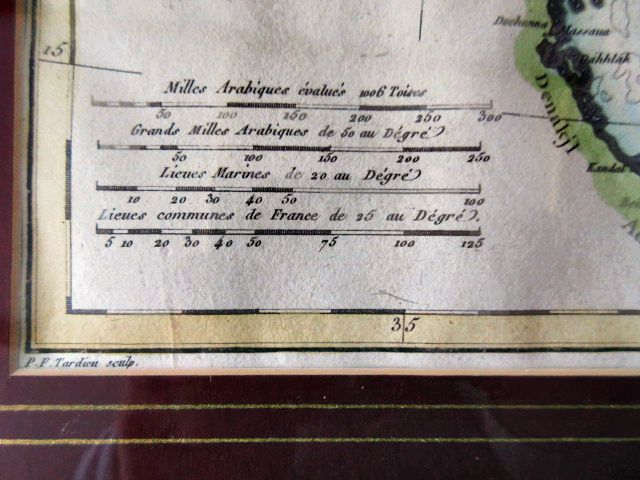 Dochanna
Massaua
15
Dahhlak
Milles Arabiques évalués 1006 Toises
50 100 150 200 250 300
Grands Milles Arabiques de 50 au Dégré
50 100 150 200 250
Lieues Marines de 20 au Dégré
10 20 30 40 50 100
Lieues communes de France de 25 au Dégré.
5 10 20 30 40 50 75 100 125
Kandal
35
P. F. Tardieu sculp.